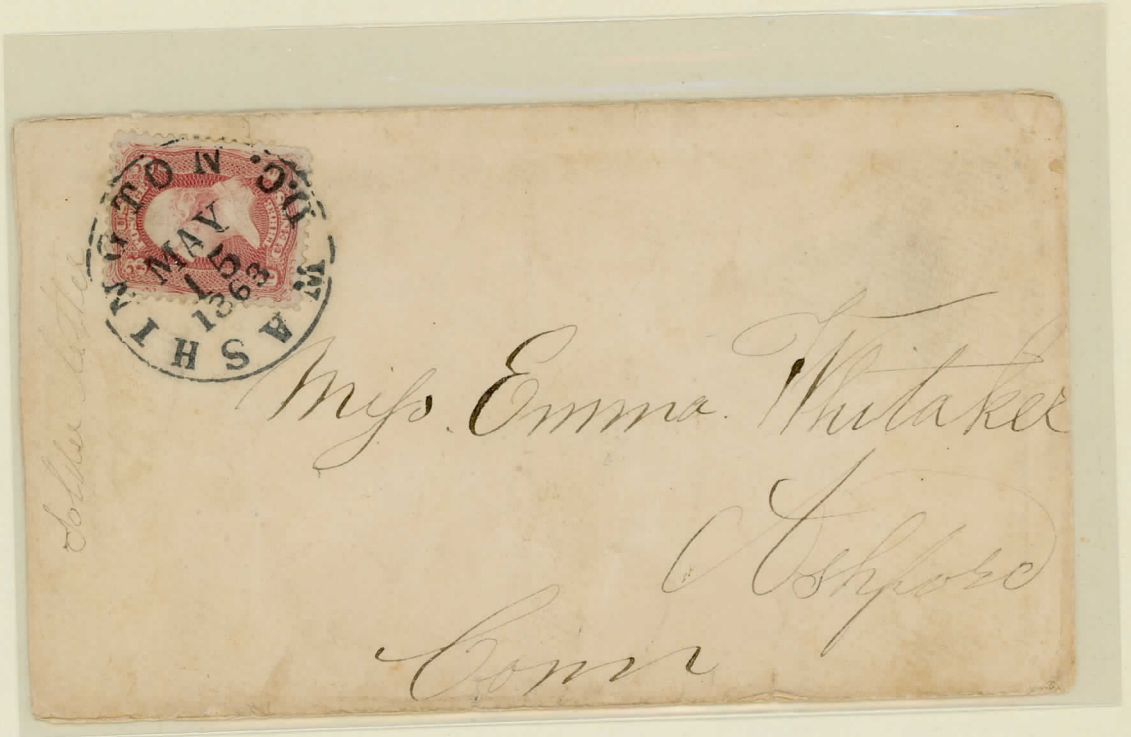 WASHINGTON D.C.
MAY
15
1863
Soldier letter
Miss. Emma. Whitaker
Ashford
Conn